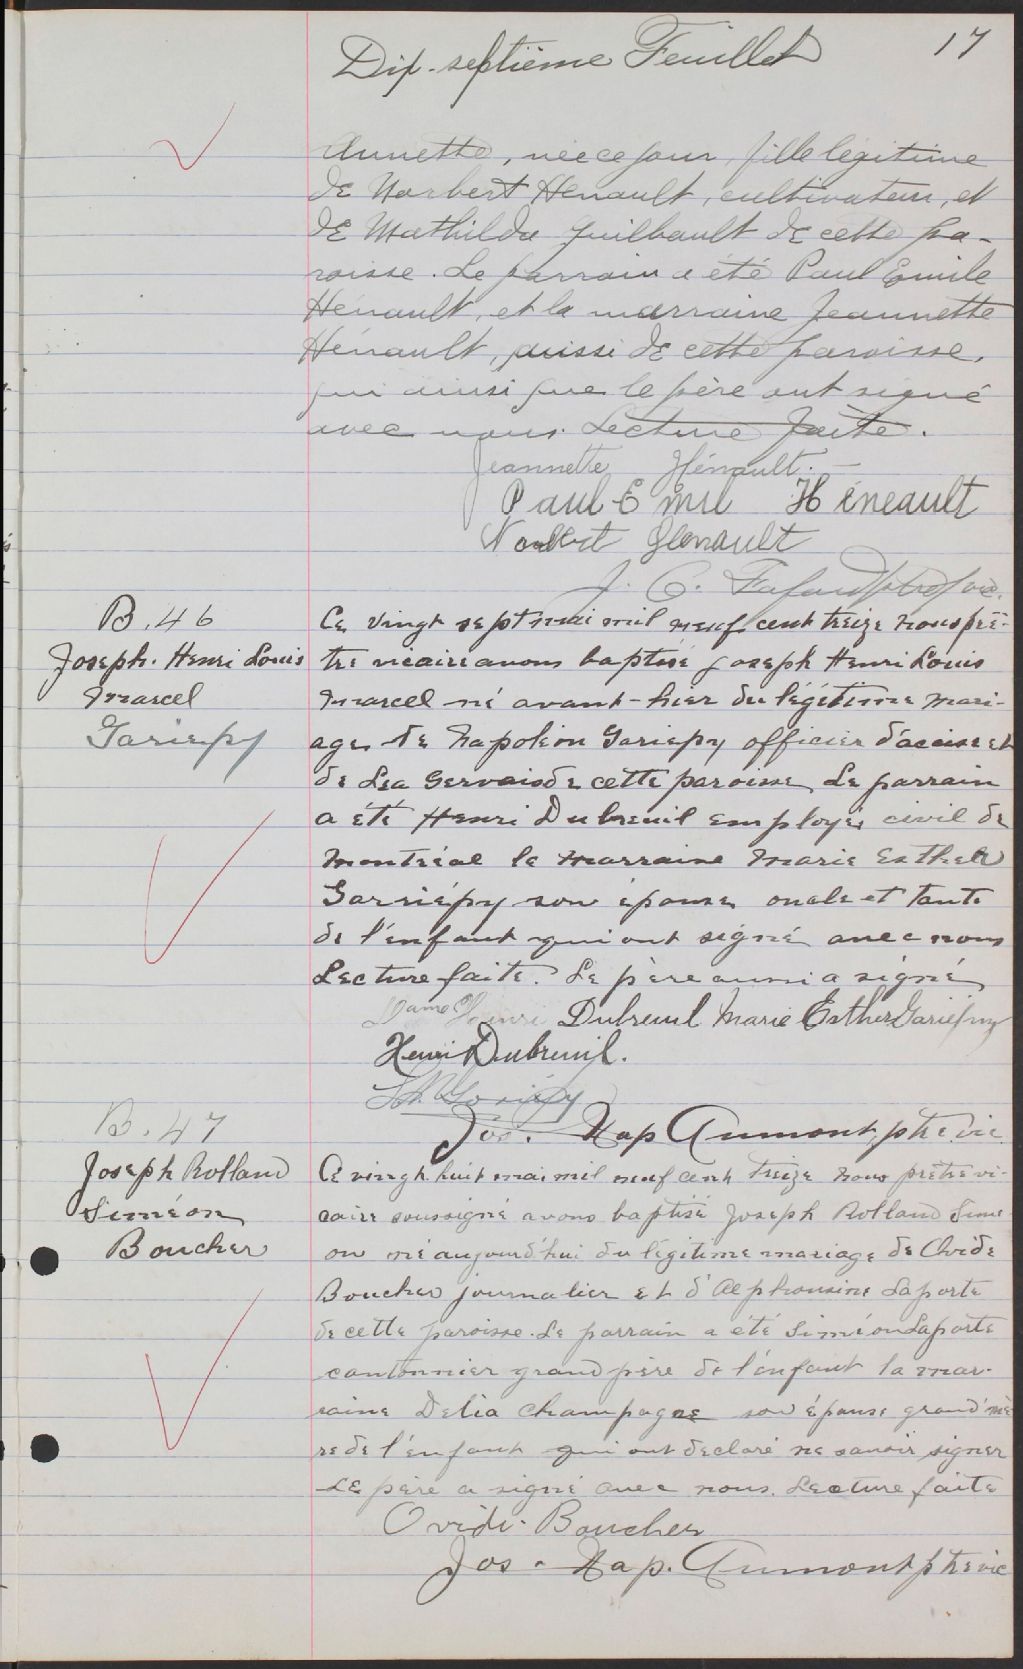 17
Dix-septième Feuillet
Annette, née ce jour, fille légitime
de Norbert Hénault, cultivateur, et
de Mathilda Guilbault de cette pa-
roisse. Le parrain a été Paul Emile
Hénault, et la marraine Jeannette
Hénault, aussi de cette paroisse,
qui ainsi que le père ont signé
avec nous. Lecture faite.
Jeannette Hénault.
Paul Emil Héneault
Norbert Henault
J. C.
B. 46
Joseph. Henri Louis
Marcel
Gariepy
Ce vingt sept mai mil neuf cent treize nous prê-
tre vicaire avons baptisé Joseph Henri Louis
Marcel né avant-hier du légitime mari-
age de Napoléon Gariepy officier d'accise et
de Lea Gervais de cette paroisse Le parrain
a été Henri Dubreuil employé civil de
Montréal la marraine Marie Esther
Garriépy son épouse oncle et tante
de l'enfant qui ont signé avec nous
Lecture faite. Le père aussi a signé
Dame Henri Dubreuil Marie Esther Gariépy
Henri Dubreuil.
Gariépy
Jos. Nap Aumont, ptre vic
B. 47
Joseph Rolland
Siméon
Boucher
Ce vingt huit mai mil neuf cent treize nous prêtre vi-
caire soussigné avons baptisé Joseph Rolland Simé-
on né aujourd'hui du légitime mariage de Ovide
Boucher journalier et d'Alphonsine Laporte
de cette paroisse. Le parrain a été Siméon Laporte
cantonnier grand père de l'enfant la mar-
raine Delia Champagne son épouse grand'mè
re de l'enfant qui ont declaré ne savoir signer
Le père a signé avec nous. Lecture faite
Ovide Boucher
Jos. Nap. Aumont ptre vic